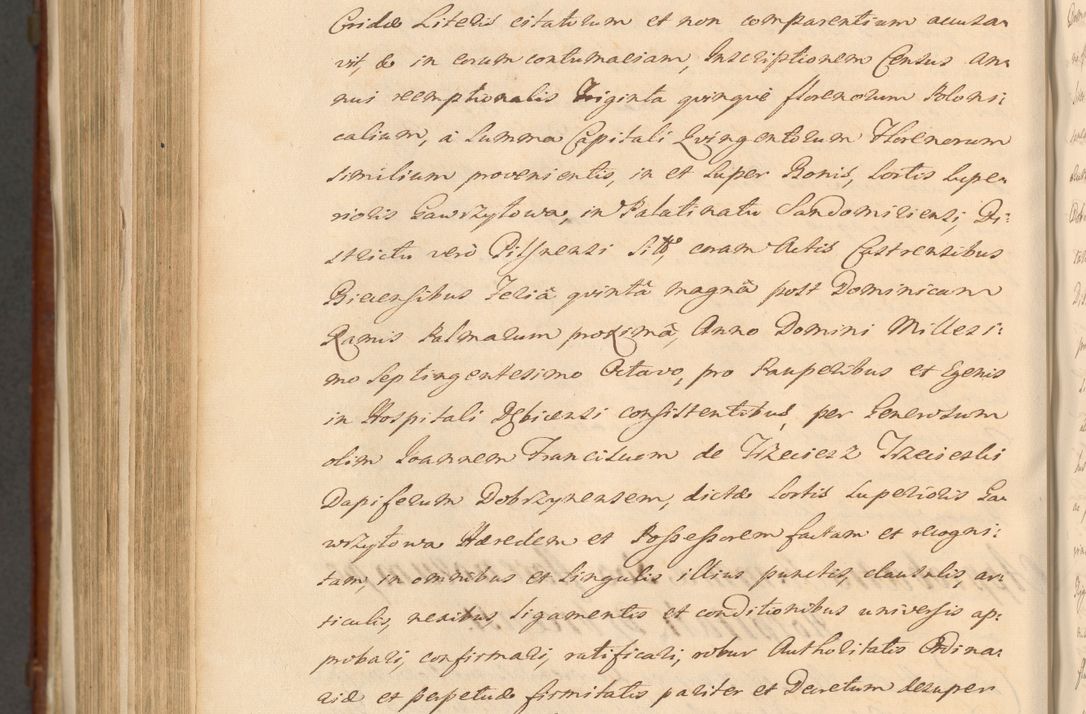 Cridæ Literis citatorum et non comparentium accusa:
vit, & in eorum contumaciam, Inscriptionem Census An:
nui reemptionalis Triginta quinque florenorum Poloni:
calium, a Summa Capitali Quingentorum Florenorum
similium provenientis, in et super Bonis, Sortis Supe:
rioris Gawrzyłowa, in Palatinatu Sandomiriensi, Di:
strictu verò Pilsnensi sitis coram Actis Castrensibus
Biecensibus Feriâ quintâ magnâ post Dominicam
Ramis Palmarum proximâ, Anno Domini Millesi:
mo Septingentesimo Octavo, pro Pauperibus et Egenis
in Hospitali Dębicensi consistentibus, per Generosum
olim Joannem Franciscum de Trzeciesz Trzecieski
Dapiferum Dobrzynensem, dictæ Sortis Superioris Ga:
wrzyłowa Hæredem et Possessorem factam et recogni:
tam, in omnibus et singulis illius punctis, clausulis, ar:
ticulis, nexibus ligamentis et conditionibus universis ap:
probari, confirmari, ratificari, robur Authoritatis Ordina:
riæ et perpetuæ firmitatis pariter et Decretum desuper